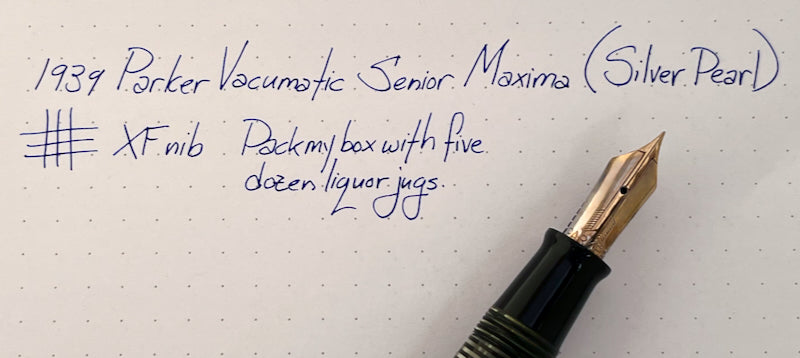 1939 Parker Vacumatic Senior Maxima (Silver Pearl)
XF nib Pack my box with five
dozen liquor jugs.